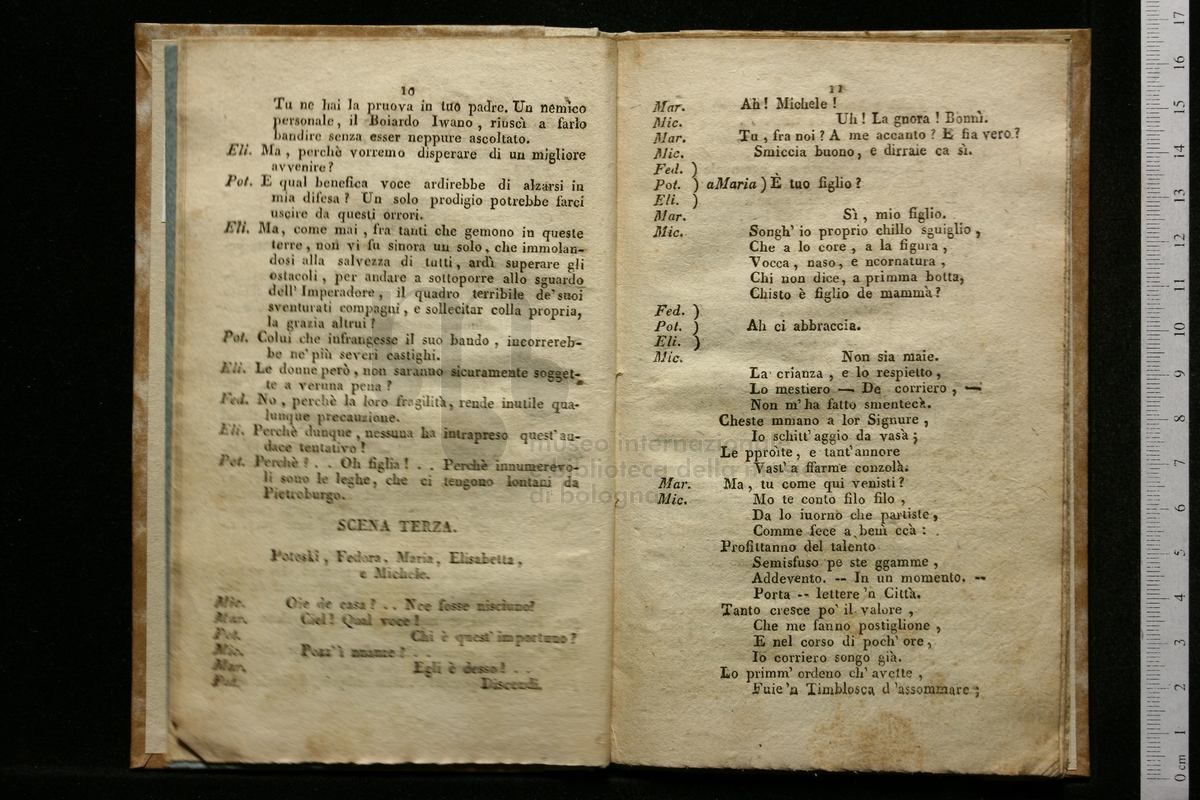 10
Tu ne hai la pruova in tuo padre. Un nemico
personale, il Boiardo Iwano, riuscì a farlo
bandire senza esser neppure ascoltato.
Eli. Ma, perchè vorremo disperare di un migliore
avvenire?
Pot. E qual benefica voce ardirebbe di alzarsi in
mia difesa? Un solo prodigio potrebbe farci
uscire da questi orrori.
Eli. Ma, come mai, fra tanti che gemono in queste
terre, non vi fu sinora un solo, che immolan-
dosi alla salvezza di tutti, ardì superare gli
ostacoli, per andare a sottoporre allo sguardo
dell'Imperadore, il quadro terribile de'suoi
sventurati compagni, e sollecitar colla propria,
la grazia altrui?
Pot. Colui che infrangesse il suo bando, incorrereb-
be ne'più severi castighi.
Eli. Le donne però, non saranno sicuramente sogget-
te a veruna pena?
Fed. No, perchè la loro fragilità, rende inutile qua-
lunque precauzione.
Eli. Perchè dunque, nessuna ha intrapreso quest'au-
dace tentativo!
Pot. Perchè?.. Oh figlia!.. Perchè innumerevo-
li sono le leghe, che ci tengono lontani da
Pietroburgo.
SCENA TERZA.
Potoski, Fedora, Maria, Elisabetta,
e Michele.
Mic. Oie de casa?.. Nce fosse nisciuno?
Mar. Ciel! Qual voce!
Pot. Chi è quest'importuno?
Mic. Pozz'i nnante?..
Mar. Egli è desso!..
Pot. Discendi.
11
Mar. Ah! Michele!
Mic. Uh! La gnora! Bonnì.
Mar. Tu, fra noi? A me accanto? E fia vero?
Mic. Smiccia buono, e dirraie ca sì.
Fed. )
Pot. ) aMaria) È tuo figlio?
Eli. )
Mar. Sì, mio figlio.
Mic. Songh'io proprio chillo sguiglio,
Che a lo core, a la figura,
Vocca, naso, e ncornatura,
Chi non dice, a primma botta,
Chisto è figlio de mamma?
Fed. )
Pot. ) Ah ci abbraccia.
Eli. )
Mic. Non sia maie.
La crianza, e lo respietto,
Lo mestiero — De corriero, —
Non m'ha fatto smentecà.
Cheste mmano a lor Signure,
Io schitt'aggio da vasà;
Le pproite, e tant'annore
Vast'a ffarme conzolà.
Mar. Ma, tu come qui venisti?
Mic. Mo te conto filo filo,
Da lo iuorno che partiste,
Comme fece a benì ccà:.
Profittanno del talento
Semisfuso pe ste ggamme,
Addevento. -- In un momento. --
Porta -- lettere 'n Città.
Tanto cresce po' il valore,
Che me fanno postiglione,
E nel corso di poch'ore,
Io corriero songo già.
Lo primm'ordeno ch'avette,
Fuie 'n Timblosca d'assommare;
museo internazionale
biblioteca della musica
di bologna
0 cm 1 2 3 4 5 6 7 8 9 10 11 12 13 14 15 16 17